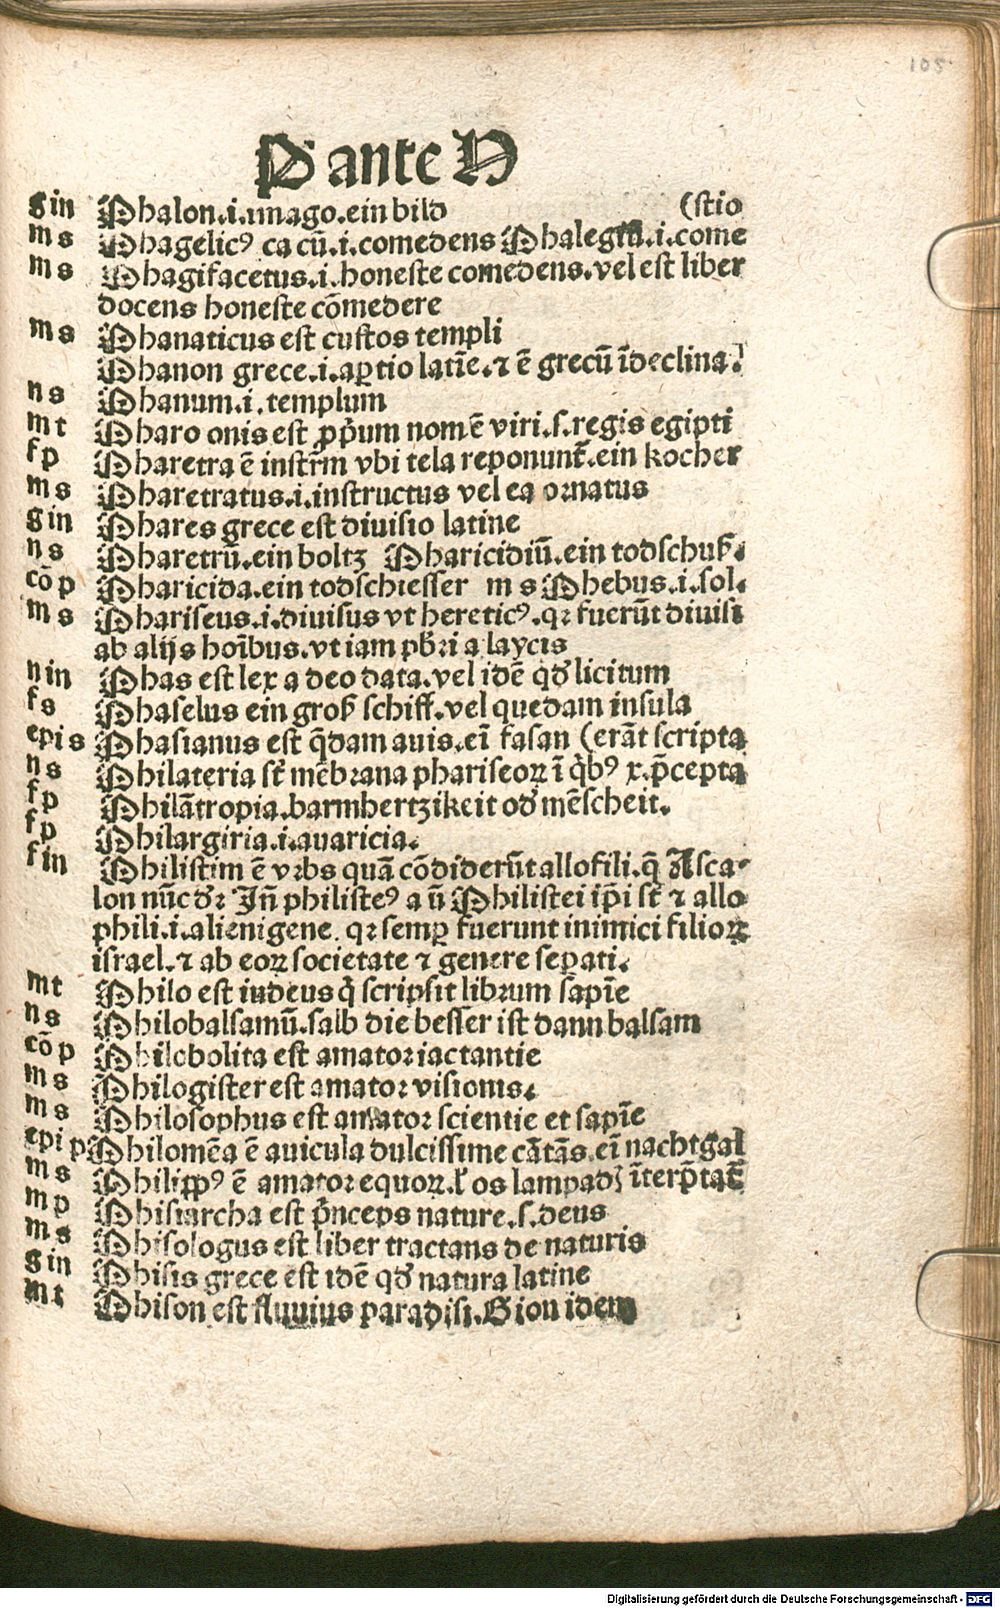 105
P ante H
gin Phalon.i.imago.ein bild (stio
m s Phagelicꝰ ca cū.i.comedens Phalegiū.i.come
m s Phagifacetus.i.honeste comedens.vel est liber
docens honeste cōmedere
m s Phanaticus est custos templi
Phanon grece.i.aꝑtio latīe.⁊ ē grecū īdeclina.
n s Phanum.i.templum
m t Pharo onis est ꝓpͥum nomē viri.s.regis egipti
f p Pharetra ē instrm̄ vbi tela reponunt̄.ein kocher
m s Pharetratus.i.instructus vel ea ornatus
gin Phares grece est diuisio latine
n s Pharetrū.ein boltz Pharicidiū.ein todschuß.
cō p Pharicida.ein todschiesser m s Phebus.i.sol.
m s Phariseus.i.diuisus vt hereticꝰ.qꝛ fuerūt diuisi
ab alijs hoībus.vt iam pb̄ri a laycis
nin Phas est lex a deo data.vel idē qd̄ licitum
f s Phaselus ein groß schiff.vel quedam insula
epi s Phasianus est q̄dam auis.eī fasan (erāt scripta
n s Philateria st̄ mēbrana phariseoꝝ ī qͥbꝰ x.p̄cepta
f p Philātropia.barmhertzikeit od̄ mēscheit.
f p Philargiria.i.auaricia.
fin Philistim ē vrbs quā cōdiderūt allofili.q̄ Asca-
lon nūc dꝛ Jn̄ philisteꝰ a ū Philistei ip̄i st̄ ⁊ allo
phili.i.alienigene.qꝛ semꝑ fuerunt inimici filioꝝ
israel.⁊ ab eoꝝ societate ⁊ genere seꝑati.
m t Philo est iudeus qͥ scripsit librum sapīe
n s Philobalsamū.salb die besser ist dann balsam
cō p Philobolita est amator iactantie
m s Philogister est amator visionis.
m s Philosophus est amator scientie et sapīe
epi p Philomēa ē auicula dulcissime cātās.eī nachtgal
m s Philippꝰ ē amator equoꝝ.ł os lampadꝭ īterp̄tat̄
m p Phisiarcha est pͥnceps nature.s.deus
m s Phisologus est liber tractans de naturis
gin Phisis grece est idē qd̄ natura latine
m t Phison est fluuius paradisi.Gion idem
Digitalisierung gefördert durch die Deutsche Forschungsgemeinschaft - DFG